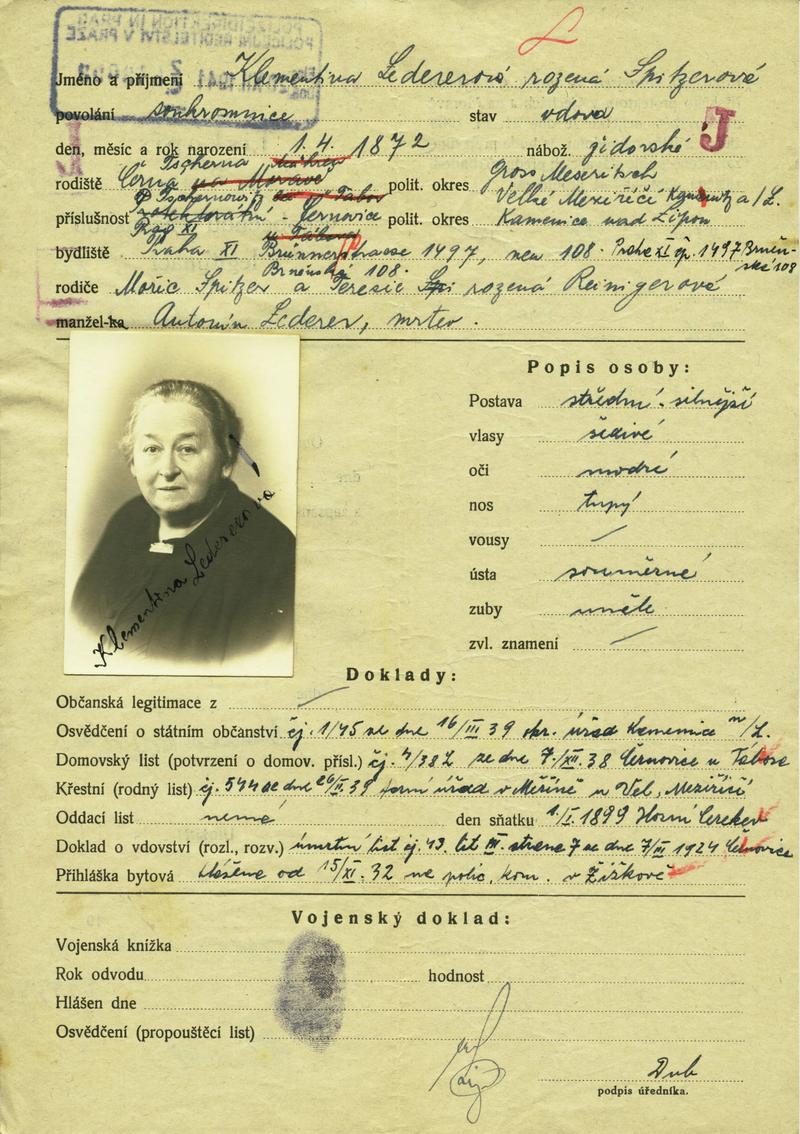 POLIZEIDIREKTION IN PRAG
POLICEJNÍ ŘEDITELSTVÍ V PRAZE
1941
Jméno a příjmení Klementina Ledererová rozená Spitzerová
povolání soukromnice stav vdova
den, měsíc a rok narození 1.4. 1872 nábož. židovské J
Tscherna Mähren Gross Meseritsch
rodiště Černá na Moravě polit. okres Velké Meziříčí Kamenitz a/L.
příslušnost Černovice polit. okres Kamenice nad Lipou
u Tábora
bydliště Praha XI Brünnerstrasse 1497, neu 108. Praha XI čp. 1497 Brněn-
Brněnská 108. ská 108
rodiče Mořic Spitzer a Teresie Spi rozená Reinigerová
manžel-ka Antonín Lederer, mrtev.
Popis osoby:
Postava střední - silnější
vlasy šedivé
oči modré
nos tupý
vousy
ústa souměrné
zuby umělé
zvl. znamení
Klementina Ledererová
Doklady:
Občanská legitimace z
Osvědčení o státním občanství čj. 1/45 ze dne 16/III 39 okr. úřad Kamenice n/L.
Domovský list (potvrzení o domov. přísl.) čj. ze dne 7./XII. 38 Černovice u Tábora
Křestní (rodný list) čj. 544 ze dne úřad v Měříně u Vel. Meziříčí
Oddací list nemá den sňatku 1./I. 1899 Horní Cerekev
Doklad o vdovství (rozl., rozv.) úmrtní list čj. 43. lit III. strana 7 ze dne 7/II 1924 Černovice
Přihláška bytová hlášena od 15/XI. 32 na polic. kom. v Žižkově
Vojenský doklad:
Vojenská knížka
Rok odvodu hodnost
Hlášen dne
Osvědčení (propouštěcí list)
Dub
podpis úředníka.